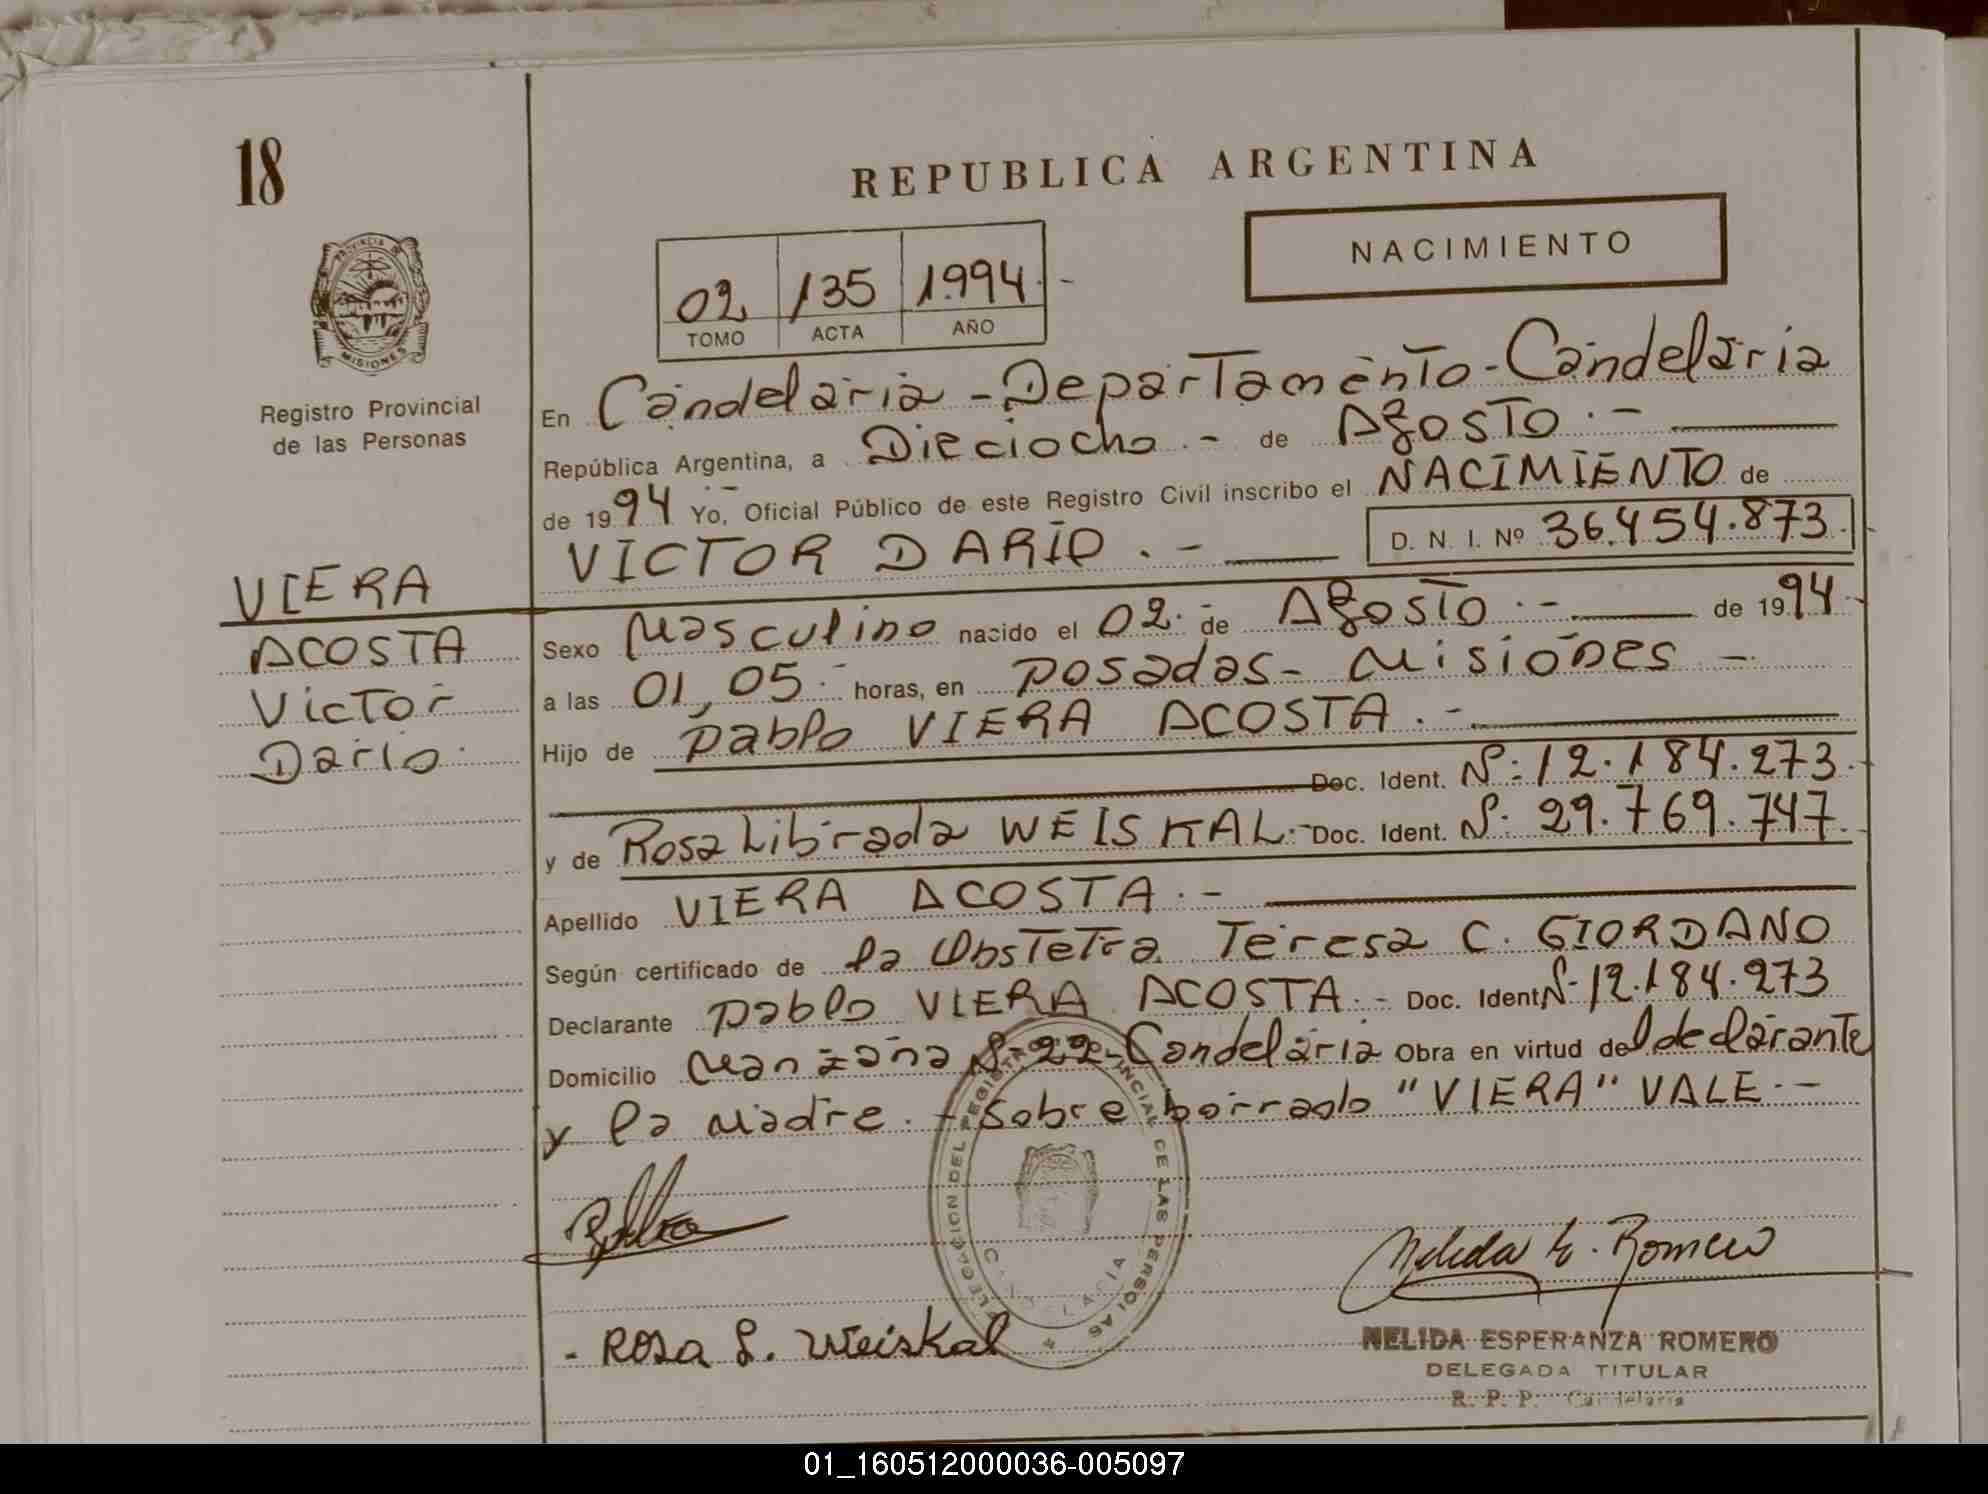 18
REPUBLICA ARGENTINA
NACIMIENTO
PROVINCIA DE
MISIONES
Registro Provincial
de las Personas
02 135 1.994.-
TOMO ACTA AÑO
En Candelaria - Departamento - Candelaria
República Argentina, a Dieciocho.- de Agosto.-
de 1994.- Yo, Oficial Público de este Registro Civil inscribo el NACIMIENTO de
VICTOR DARIO.- D. N. I. Nº 36.454.873.-
VIERA
ACOSTA
Victor
Dario.
Sexo Masculino nacido el 02. de Agosto.- de 1994.-
a las 01,05.- horas, en Posadas - Misiones -
Hijo de Pablo VIERA ACOSTA.-
Doc. Ident. Nº 12.184.273.-
y de Rosa Librada WEISKAL.- Doc. Ident. Nº 29.769.747.
Apellido VIERA ACOSTA.-
Según certificado de la Obstetra Teresa C. GIORDANO
Declarante Pablo VIERA ACOSTA.- Doc. Ident. Nº 12.184.273
Domicilio Manzana Nº 22 - Candelaria Obra en virtud del declarante
y la Madre.- Sobre borrado "VIERA" VALE.-
DELEGACION DEL REGISTRO PROVINCIAL DE LAS PERSONAS
CANDELARIA
Nelida E. Romero
- Rosa L. Weiskal
NELIDA ESPERANZA ROMERO
DELEGADA TITULAR
R. P. P. Candelaria
01_160512000036-005097